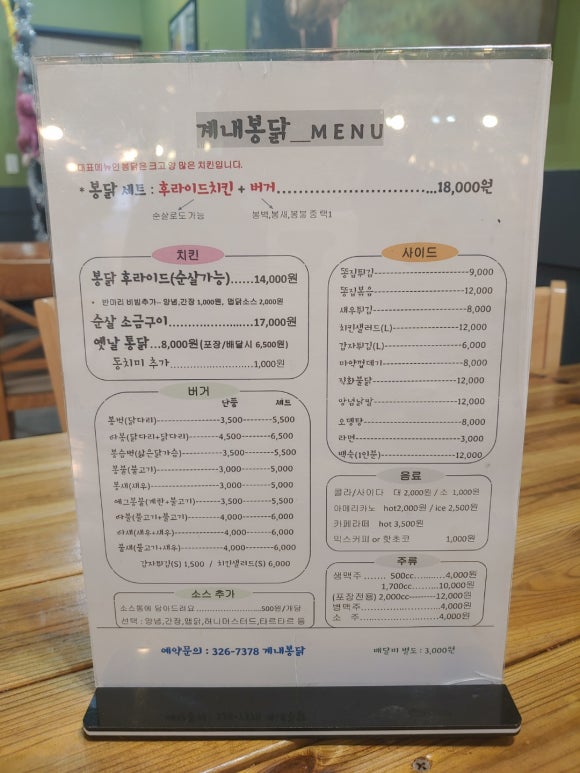 계내봉닭_MENU
대표메뉴인 봉닭은 크고 양 많은 치킨입니다.
* 봉닭 세트 : 후라이드치킨 + 버거..............................18,000원
순살로도 가능
봉벅,봉새,봉불 중 택1
치킨
봉닭 후라이드(순살가능)......14,000원
• 반마리 비빔추가-- 양념,간장 1,000원, 멉닭소스 2,000원
순살 소금구이.....................17,000원
옛날 통닭...8,000원(포장/배달시 6,500원)
동치미 추가 --------------------1,000원
버거
단품 세트
봉벅(닭다리)------------3,500-------5,500
따봉(닭다리+닭다리)--------4,500-------6,500
봉슴벅(삶은닭가슴)----------3,500------5,500
봉불(불고기)------------3,000------5,000
봉새(새우)--------------3,000------5,000
에그봉불(계란+불고기)-------3,500------5,500
따불(불고기+불고기)--------4,000------6,000
따새(새우+새우)----------4,000------6,000
불새(불고기+새우)---------4,000------6,000
감자튀김(S) 1,500 / 치킨샐러드(S) 6,000
소스 추가
소스통에 담아드려요 ...................500원/개당
선택 : 양념,간장,맵닭,허니머스터드,타르타르 등
사이드
똥집튀김------------------------9,000
똥집볶음------------------------12,000
새우튀김------------------------8,000
치킨샐러드(L)--------------------12,000
감자튀김(L)---------------------6,000
마약껍데기----------------------8,000
직화불닭------------------------12,000
양념닭발------------------------12,000
오뎅탕--------------------------8,000
라면----------------------------3,000
백숙(1인분)---------------------12,000
음료
콜라/사이다 대 2,000원 / 소 1,000원
아메리카노 hot2,000원 / ice 2,500원
카페라떼 hot 3,500원
믹스커피 or 핫초코 1,000원
주류
생맥주 ...... 500cc..........4,000원
1,700cc............10,000원
(포장전용) 2,000cc--------12,000원
병맥주.......................4,000원
소 주 .......................4,000원
예약문의 : 326-7378 계내봉닭
배달비 별도 : 3,000원